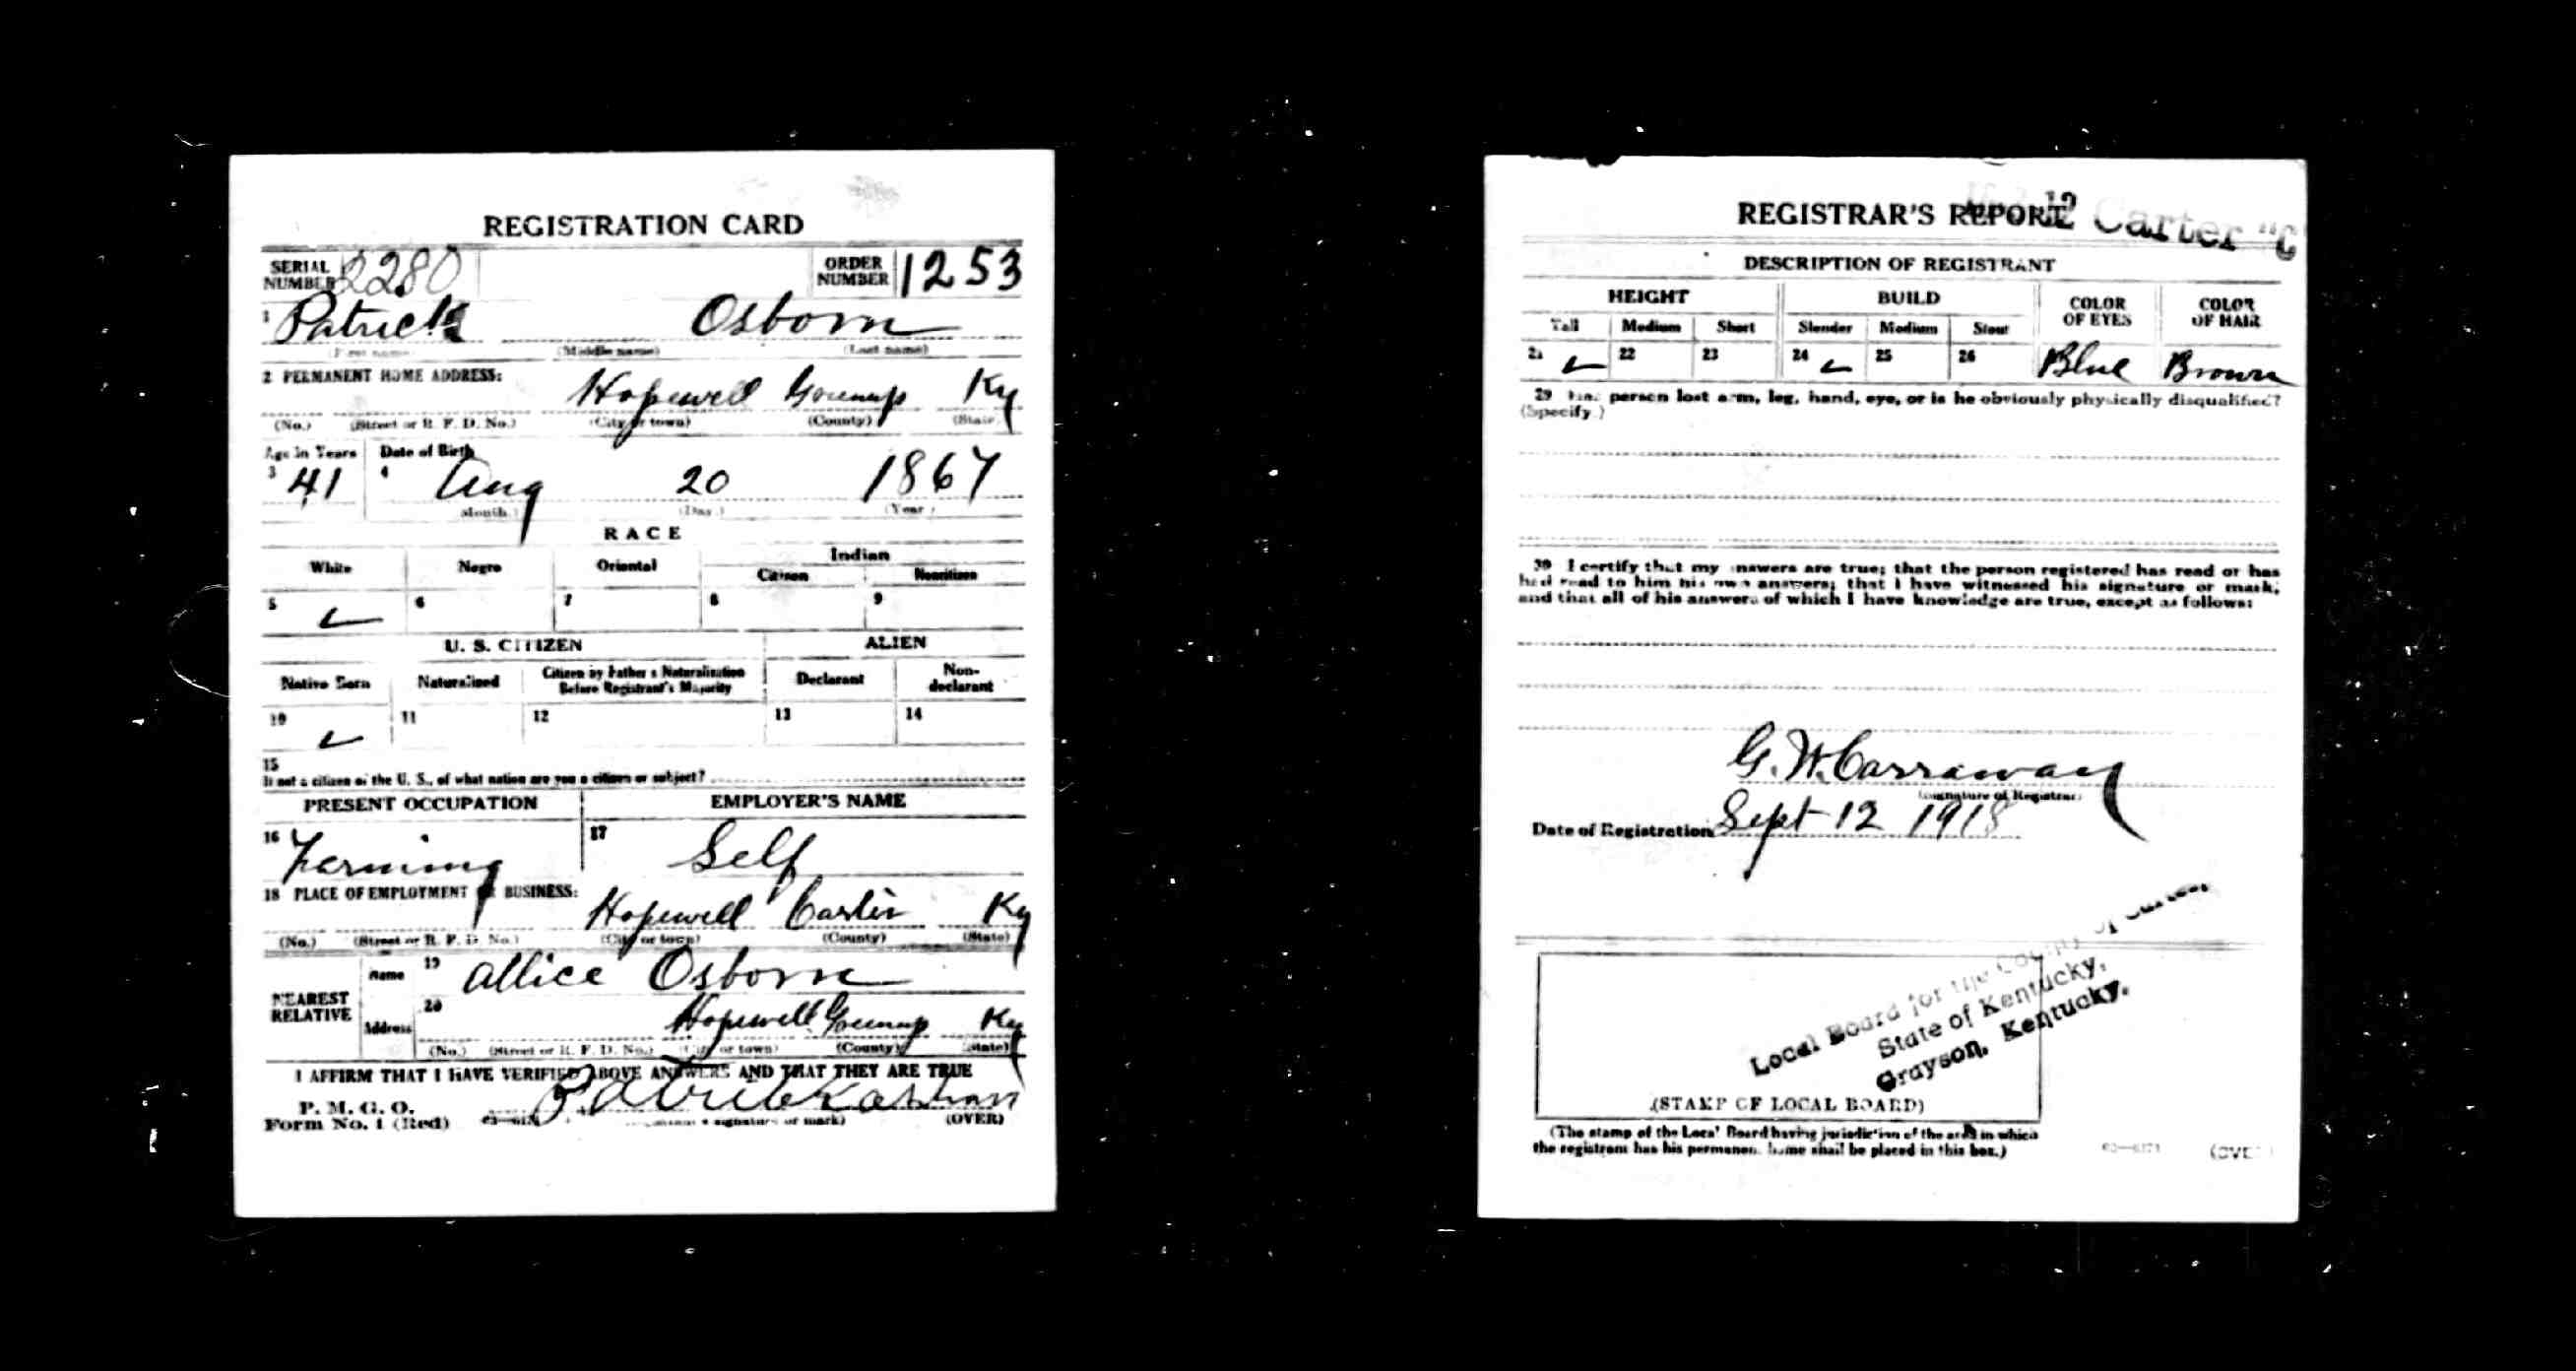 REGISTRATION CARD
SERIAL NUMBER 2280 ORDER NUMBER 1253
1 Patrick Osborn
(First name) (Middle name) (Last name)
2 PERMANENT HOME ADDRESS:
Hopewell Greenup Ky
(No.) (Street or R. F. D. No.) (City or town) (County) (State)
Age in Years Date of Birth
3 41 4 Aug 20 1867
(Month.) (Day.) (Year.)
RACE
White Negro Oriental Indian
Citizen Noncitizen
5 ✓ 6 7 8 9
U. S. CITIZEN ALIEN
Native Born Naturalized Citizen by Father's Naturalization Before Registrant's Majority Declarant Non-declarant
10 ✓ 11 12 13 14
15
If not a citizen of the U. S., of what nation are you a citizen or subject?
PRESENT OCCUPATION EMPLOYER'S NAME
16 Farming 17 Self
18 PLACE OF EMPLOYMENT OR BUSINESS:
Hopewell Carter Ky
(No.) (Street or R. F. D. No.) (City or town) (County) (State)
NEAREST RELATIVE Name 19 Allice Osborn
Address 20 Hopewell Greenup Ky
(No.) (Street or R. F. D. No.) (City or town) (County) (State)
I AFFIRM THAT I HAVE VERIFIED ABOVE ANSWERS AND THAT THEY ARE TRUE
P. M. G. O.
Form No. 1 (Red) (signature or mark) (OVER)
REGISTRAR'S REPORT
12 Carter "C
DESCRIPTION OF REGISTRANT
HEIGHT BUILD COLOR OF EYES COLOR OF HAIR
Tall Medium Short Slender Medium Stout
21 ✓ 22 23 24 ✓ 25 26 Blue Brown
29 Has person lost arm, leg, hand, eye, or is he obviously physically disqualified?
(Specify.)
30 I certify that my answers are true; that the person registered has read or has
had read to him his own answers; that I have witnessed his signature or mark,
and that all of his answers of which I have knowledge are true, except as follows:
G. W. Carraway
(Signature of Registrar)
Date of Registration Sept 12 1918
Local Board for the County of Carter,
State of Kentucky,
Grayson, Kentucky.
(STAMP OF LOCAL BOARD)
(The stamp of the Local Board having jurisdiction of the area in which
the registrant has his permanent home shall be placed in this box.)
(OVER)